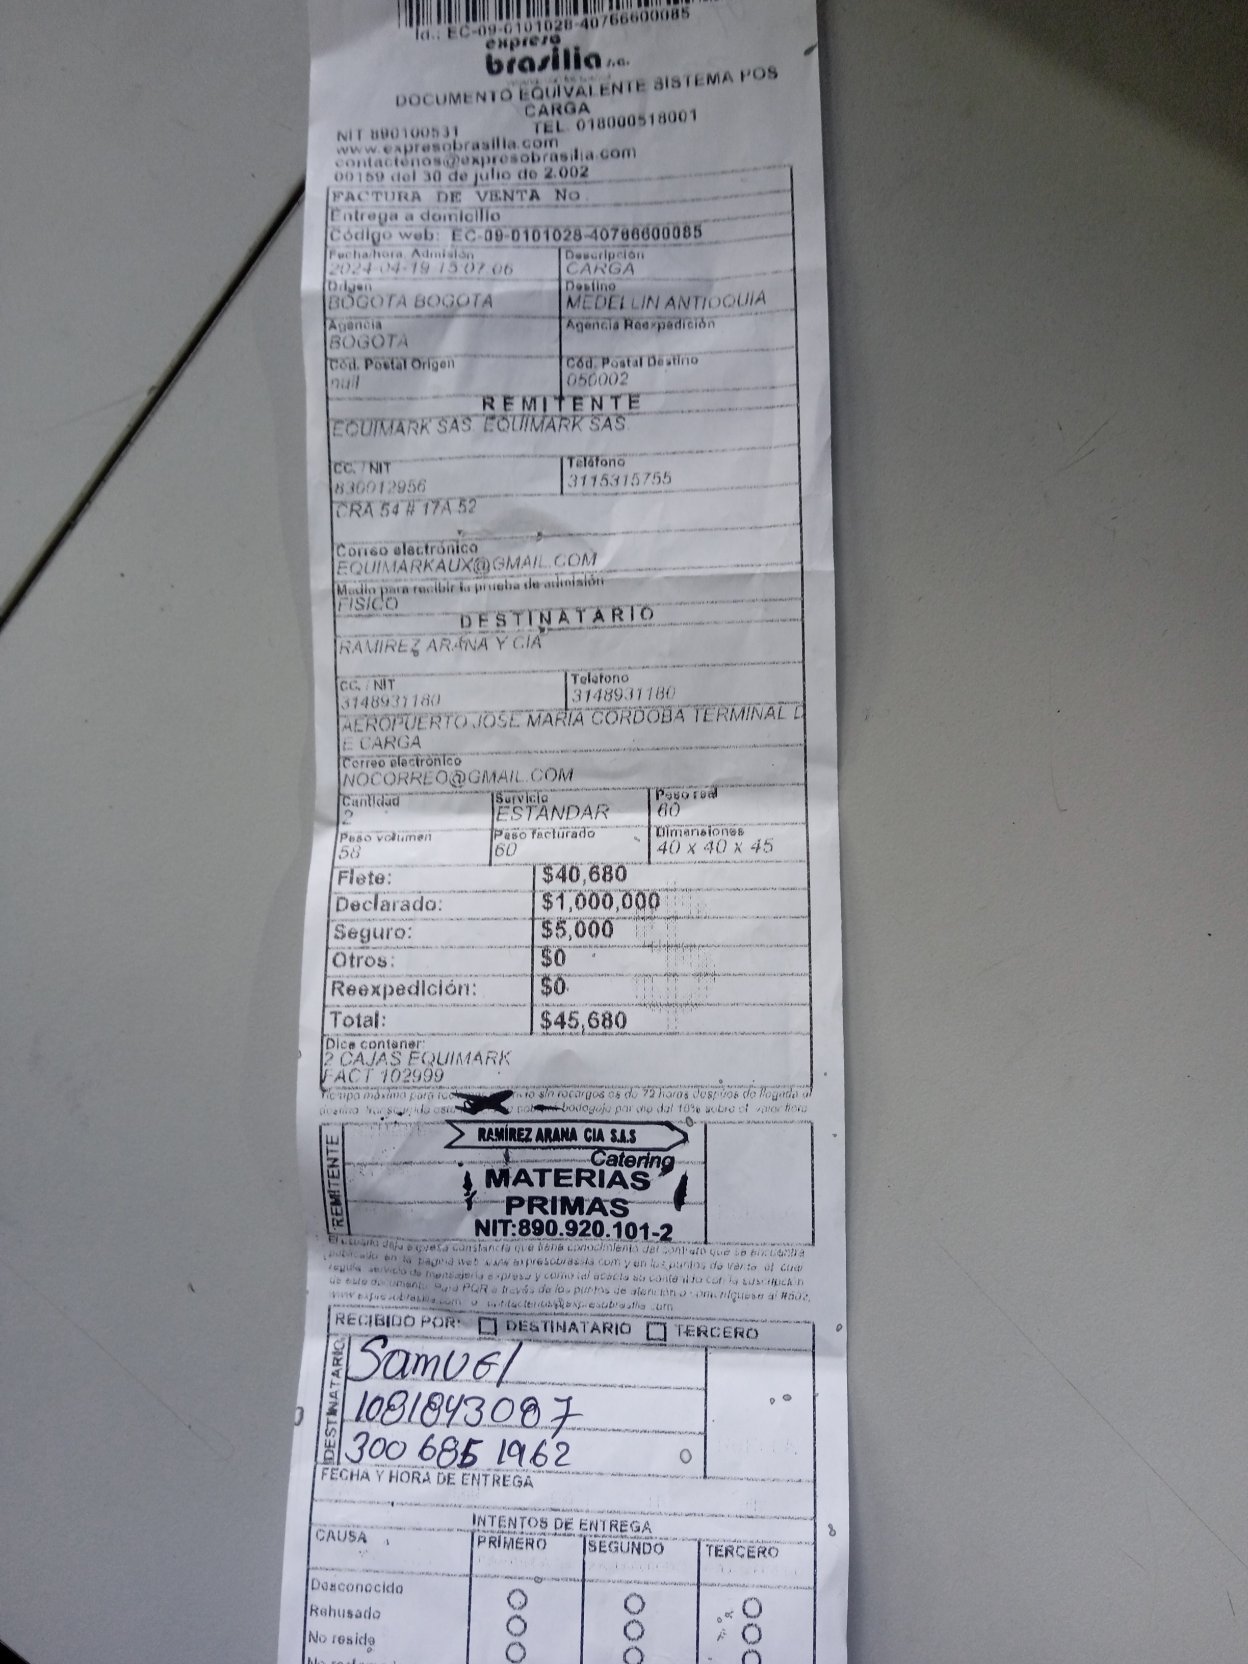 Id.: EC-09-0101028-40766600085
expreso
brasilia s.a.
DOCUMENTO EQUIVALENTE SISTEMA POS
CARGA
NIT 890100531 TEL. 018000518001
www.expresobrasilia.com
contactenos@expresobrasilia.com
00159 del 30 de julio de 2.002
FACTURA DE VENTA No.
Entrega a domicilio
Código web: EC-09-0101028-40766600085
Fecha/hora. Admisión Descripción
2024-04-19 15:07:06 CARGA
Origen Destino
BOGOTA BOGOTA MEDELLIN ANTIOQUIA
Agencia Agencia Reexpedición
BOGOTA
Cód. Postal Origen Cód. Postal Destino
null 050002
REMITENTE
EQUIMARK SAS. EQUIMARK SAS
CC. / NIT Teléfono
830012956 3115315755
CRA 54 # 17A 52
Correo electrónico
EQUIMARKAUX@GMAIL.COM
Medio para recibir la prueba de admisión
FISICO
DESTINATARIO
RAMIREZ ARANA Y CIA
CC. / NIT Telefono
3148931180 3148931180
AEROPUERTO JOSE MARIA CORDOBA TERMINAL D
E CARGA
Correo electrónico
NOCORREO@GMAIL.COM
Cantidad Servicio Peso real
2 ESTANDAR 60
Peso volumen Peso facturado Dimensiones
58 60 40 x 40 x 45
Flete: $40,680
Declarado: $1,000,000
Seguro: $5,000
Otros: $0
Reexpedición: $0
Total: $45,680
Dice contener:
2 CAJAS EQUIMARK
FACT 102999
Tiempo máximo para sin recargos es de 72 horas después de llegada al
destino bodegaje por día del 10% sobre el valor flete
REMITENTE
RAMÍREZ ARANA CIA S.A.S
Catering
MATERIAS
PRIMAS
NIT:890.920.101-2
El usuario deja expresa constancia que tiene conocimiento del contrato que se encuentra
publicado en la pagina web www.expresobrasilia.com y en los puntos de venta, el cual
regula servicio de mensajería expresa y como tal acepta su contenido con la suscripción
de este documento. Para PQR a través de los puntos de atención o comuníquese al #502,
www.expresobrasilia.com o contactenos@expresobrasilia.com
RECIBIDO POR: DESTINATARIO TERCERO
DESTINATARIO
Samuel
1081843087
300 685 1962
FECHA Y HORA DE ENTREGA
INTENTOS DE ENTREGA
CAUSA PRIMERO SEGUNDO TERCERO
Desconocido
Rehusado
No reside